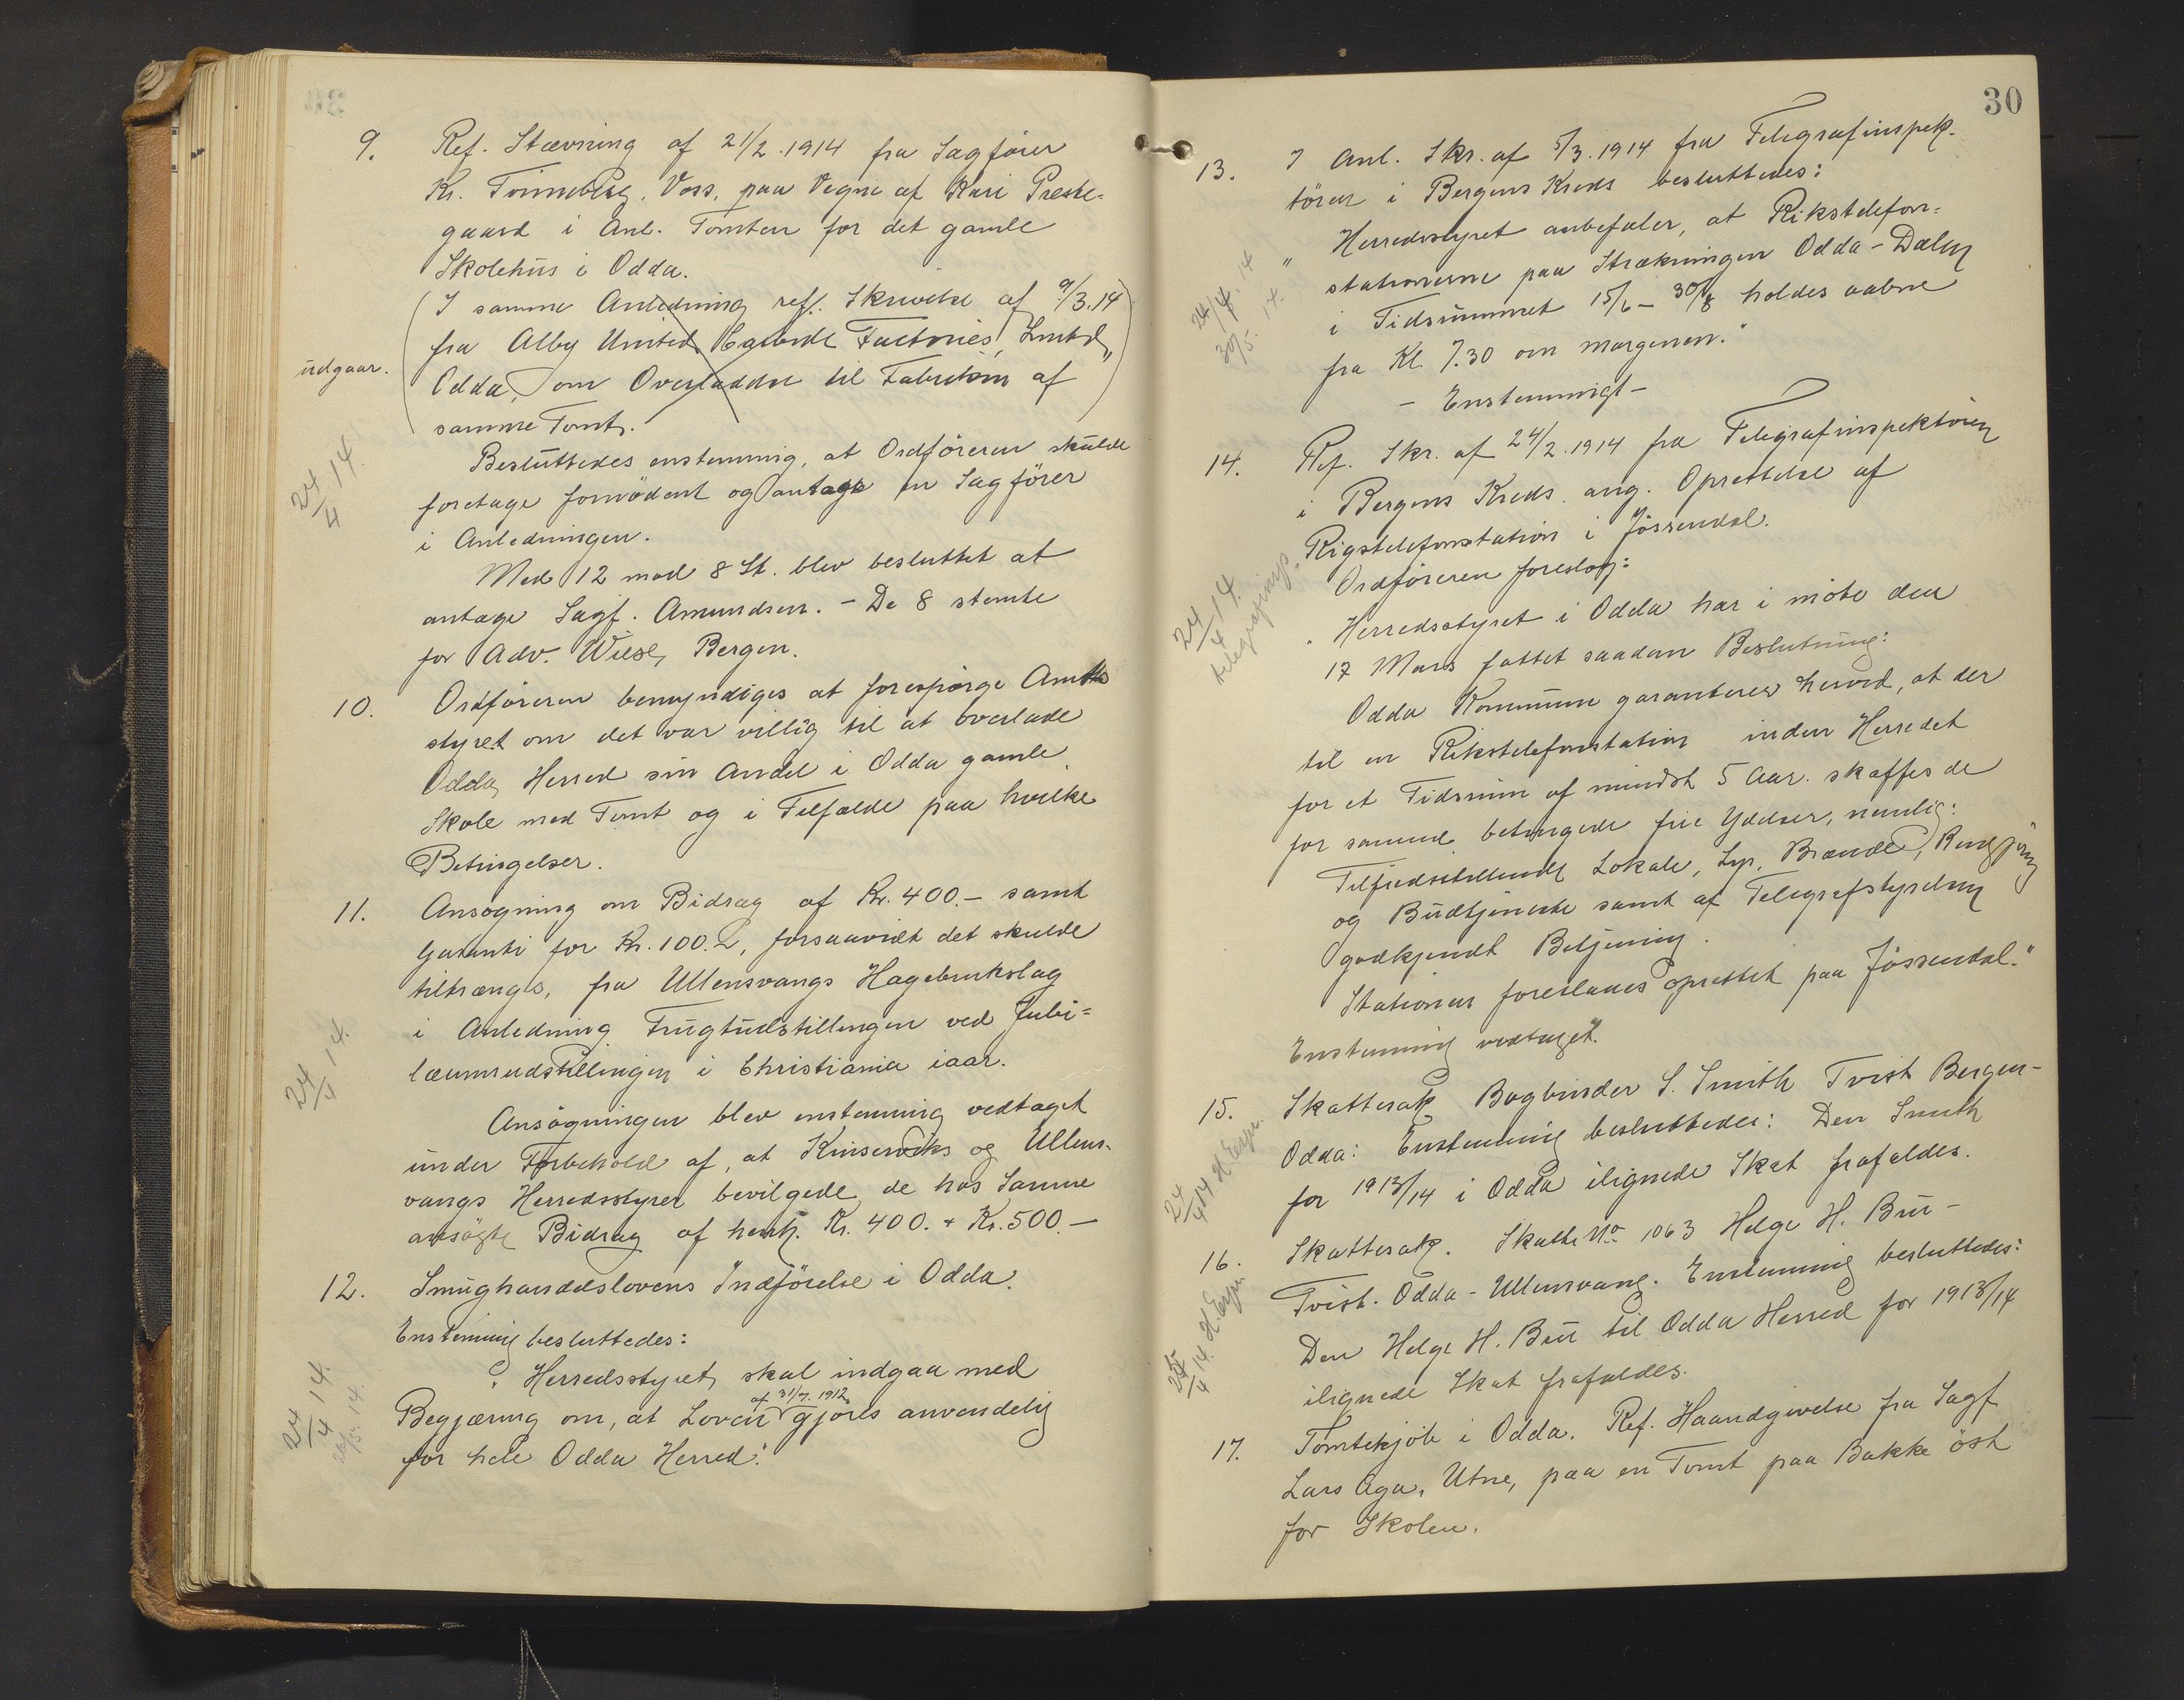 9. Ref. Stævning af 21/2. 1914 fra Sagfører
Kr. Tönneberg, Voss, paa Vegne af Kari Preste-
gaard i Anl. Tomten for det gamle
Skolehus i Odda.
(I samme Anledning ref. Skrivelse af 9/3. 14
fra Alby United Carbide Factories, Limtd,
udgaar. Odda, om Overladelse til Fabriken af
samme Tomt.)
Besluttedes enstemmig, at Ordføreren skulde
24/4 14. foretage fornödent og antage en Sagfører
i Anledningen.
Med 12 mod 8 St. blev besluttet at
antage Sagf. Amundsen. - De 8 stemte
for Adv. Wiese, Bergen.
10. Ordføreren bemyndiges at forespörge Amts
styret om det var villig til at overlade
Odda Herred sin Andel i Odda gamle
Skole med Tomt og i Tilfælde paa hvilke
Betingelser.
11. Ansögning om Bidrag af Kr. 400.- samt
Garanti for Kr. 100.-, forsaavidt det skulde
tiltrænges, fra Ullensvangs Hagebrukslag
i Anledning Frugtudstillingen ved Jubi-
24/4 14. læumsudstillingen i Christiania iaar.
Ansögningen blev enstemmig vedtaget
under Forbehold af, at Kinserviks og Ullens-
vangs Herredsstyrer bevilgede de hos Samme
ansögte Bidrag af henh. Kr. 400. + Kr. 500.-
12. Smughandelslovens Indförelse i Odda.
Enstemmig besluttedes:
24/4 14. „Herredsstyret skal indgaa med
af 31/7. 1912
Begjæring om, at Loven gjöres anvendelig
for hele Odda Herred."
30
13. I Anl. Skr. af 5/3. 1914 fra Telegrafinspek-
tören i Bergens Kreds besluttedes:
„Herredsstyret anbefaler, at Rikstelefon-
24/4. 14 stationerne paa Strækningen Odda - Dalen
30/5. 14. i Tidsrummet 15/6 - 30/8 holdes aabne
fra Kl. 7.30 om morgenen."
- Enstemmigt -
14. Ref. Skr. af 24/2. 1914 fra Telegrafinspektören
i Bergens Kreds ang. Oprettelse af
Rigstelefonstation i Jössendal.
Ordføreren foreslog:
24/4 14. „Herredsstyret i Odda har i möte den
telegrafinsp. 17 Mars fattet saadan Beslutning:
Odda Kommune garanterer herved, at der
til en Rikstelefonstation inden Herredet
for et Tidsrum af mindst 5 Aar skaffes de
for samme betingede frie Ydelser, nemlig:
Tilfredsstillende Lokale, Lys, Brænde, Rengjöring
og Budtjeneste samt af Telegrafstyrelsen
godkjendt Betjening.
Stationen foreslaaes oprettet paa Jössendal."
Enstemmig vedtaget.
15. Skattesak Bogbinder S. Smith Tvist Bergen-
Odda: Enstemmig besluttedes: Den Smith
24/4 14 for 1913/14 i Odda ilignede Skat frafaldes.
16. Skattesak. Skatte No 1063 Helge H. Bu -
Tvist. Odda - Ullensvang. Enstemmig besluttedes:
Den Helge H. Bu til Odda Herred for 1913/14
ilignede Skat frafaldes.
17. Tomtekjöb i Odda. Ref. Haandgivelse fra Sagf
Lars Aga, Utne, paa en Tomt paa Bakke öst
for Skolen.